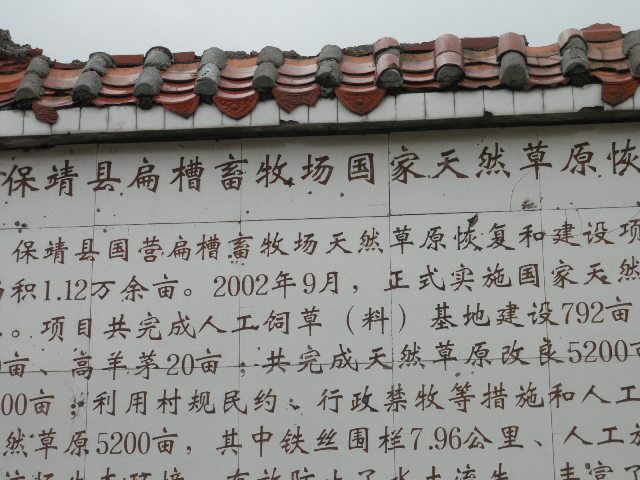 保靖县扁槽畜牧场国家天然草原恢
保靖县国营扁槽畜牧场天然草原恢复和建设项
积1.12万余亩。2002年9月，正式实施国家天然
。项目共完成人工饲草（料）基地建设792亩
亩、高羊茅20亩；共完成天然草原改良5200亩
00亩；利用村规民约、行政禁牧等措施和人工
然草原5200亩，其中铁丝围栏7.96公里、人工
有效防止了水土流失，丰富了